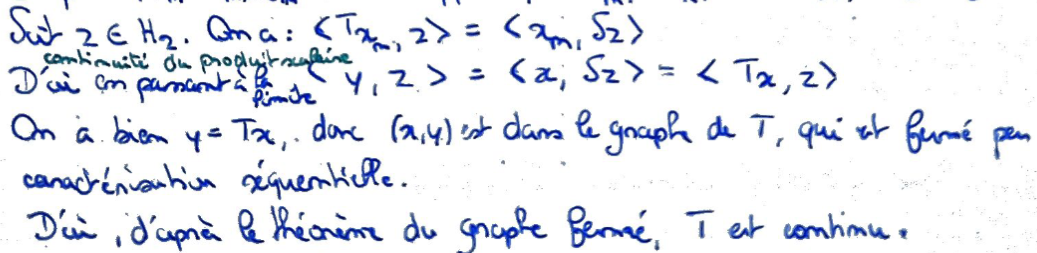 Soit z ∈ H₂. On a : <Txₙ, z> = <xₙ, Sz>
continuité du produit scalaire
D'où en passant à la limite <y, z> = <x, Sz> = <Tx, z>
On a bien y = Tx, donc (x,y) est dans le graphe de T, qui est fermé par
caractérisation séquentielle.
D'où, d'après le théorème du graphe fermé, T est continu.